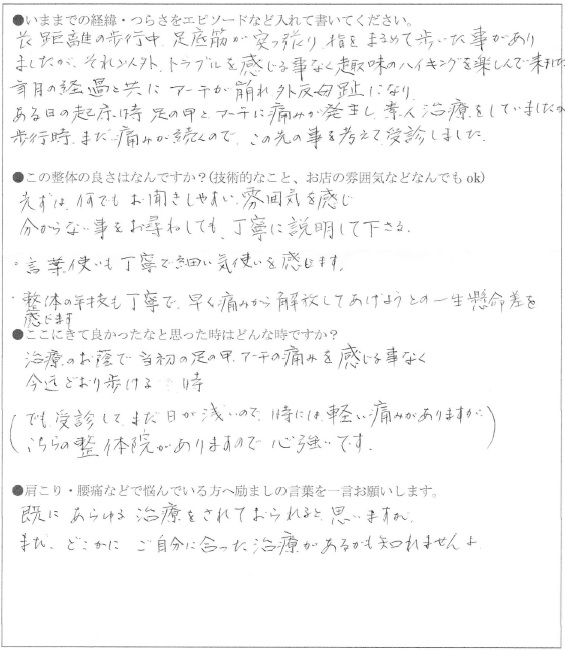 ●いままでの経緯・つらさをエピソードなど入れて書いてください。
長距離の歩行中、足底筋が突っ張り、指をまるめて歩いた事があり
ましたが、それ以外、トラブルを感じる事なく趣味のハイキングを楽しんで来ました
年月の経過と共に アーチが崩れ外反母趾になり
ある日の起床時 足の甲とアーチに痛みが発生し、素人治療をしていましたが
歩行時、まだ痛みが続くので、この先の事を考えて受診しました。
●この整体の良さはなんですか？(技術的なこと、お店の雰囲気などなんでも ok)
先ずは、何でもお聞きしやすい雰囲気を感じ
分からない事をお尋ねしても、丁寧に説明して下さる。
・言葉使いも丁寧で細い気使いを感じます。
・整体の手技も丁寧で、早く痛みから解放してあげようとの一生懸命差を
感じます
●ここにきて良かったなと思った時はどんな時ですか？
治療のお蔭で当初の足の甲、アーチの痛みを感じる事なく
今迄どおり歩ける 時
(でも、受診して、まだ日が浅いので、時には軽い痛みがありますが、
こちらの整体院がありますので 心強いです。)
●肩こり・腰痛などで悩んでいる方へ励ましの言葉を一言お願いします。
既に あらゆる 治療をされておられると思いますが、
まだ、どこかに ご自分に合った治療があるかも知れませんよ